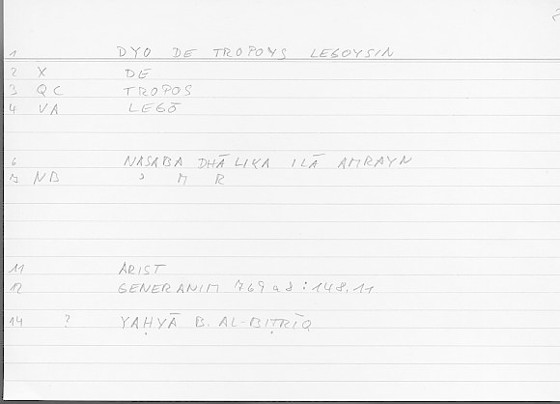 1 DYO DE TROPOYS LEGOYSIN
2 X DE
3 QC TROPOS
4 VA LEGŌ
6 NASABA DHĀLIKA ILĀ AMRAYN
7 NB ʾ M R
11 ARIST
12 GENERANIM 769a8:148.11
14 ? YAḤYĀ B. AL-BIṬRĪQ